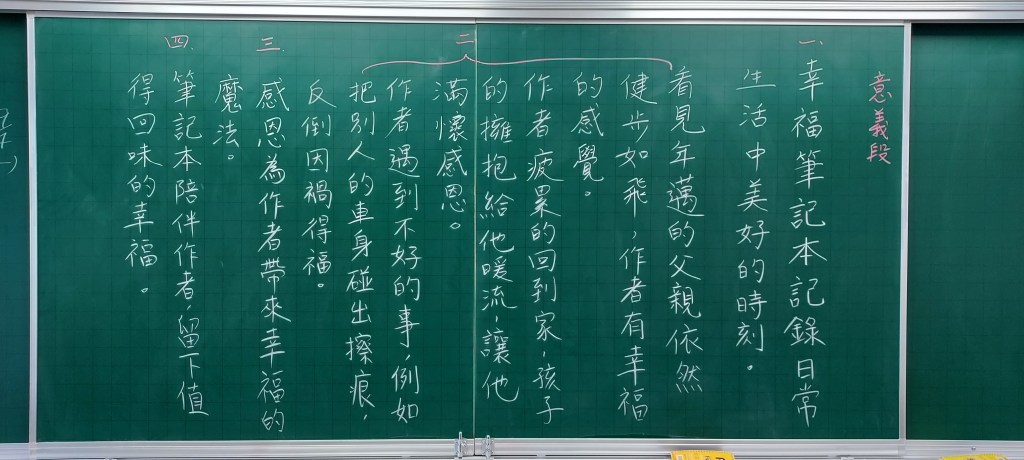 意義段
一、
幸福筆記本記錄日常
生活中美好的時刻。
二、
看見年邁的父親依然
健步如飛，作者有幸福
的感覺。
作者疲累的回到家，孩子
的擁抱給他暖流，讓他
滿懷感恩。
作者遇到不好的事，例如
把別人的車身碰出擦痕，
反倒因禍得福。
三、
感恩為作者帶來幸福的
魔法。
四、
筆記本陪伴作者，留下值
得回味的幸福。